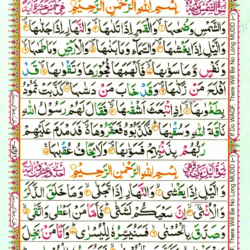 بِسْمِ اللهِ الرَّحْمٰنِ الرَّحِيْمِ
وَالشَّمْسِ وَضُحٰىهَا وَالْقَمَرِ اِذَا تَلٰىهَا وَالنَّهَارِ اِذَا جَلّٰىهَا
وَالَّيْلِ اِذَا يَغْشٰىهَا وَالسَّمَآءِ وَمَا بَنٰىهَا وَالْاَرْضِ وَمَا طَحٰىهَا
وَنَفْسٍ وَّمَا سَوّٰىهَا فَاَلْهَمَهَا فُجُوْرَهَا وَتَقْوٰىهَا قَدْ
اَفْلَحَ مَنْ زَكّٰىهَا وَقَدْ خَابَ مَنْ دَسّٰىهَا كَذَّبَتْ ثَمُوْدُ
بِطَغْوٰىهَا اِذِ انْۢبَعَثَ اَشْقٰىهَا فَقَالَ لَهُمْ رَسُوْلُ اللهِ
نَاقَةَ اللهِ وَسُقْيٰهَا فَكَذَّبُوْهُ فَعَقَرُوْهَا فَدَمْدَمَ عَلَيْهِمْ
رَبُّهُمْ بِذَنْۢبِهِمْ فَسَوّٰىهَا وَلَا يَخَافُ عُقْبٰهَا
بِسْمِ اللهِ الرَّحْمٰنِ الرَّحِيْمِ
وَالَّيْلِ اِذَا يَغْشٰى وَالنَّهَارِ اِذَا تَجَلّٰى وَمَا خَلَقَ الذَّكَرَ
وَالْاُنْثٰى اِنَّ سَعْيَكُمْ لَشَتّٰى فَاَمَّا مَنْ اَعْطٰى وَاتَّقٰى
وَصَدَّقَ بِالْحُسْنٰى فَسَنُيَسِّرُهٗ لِلْيُسْرٰى وَاَمَّا مَنْۢ بَخِلَ
If Do WAQF, There Will Be No Long MUDD (~)